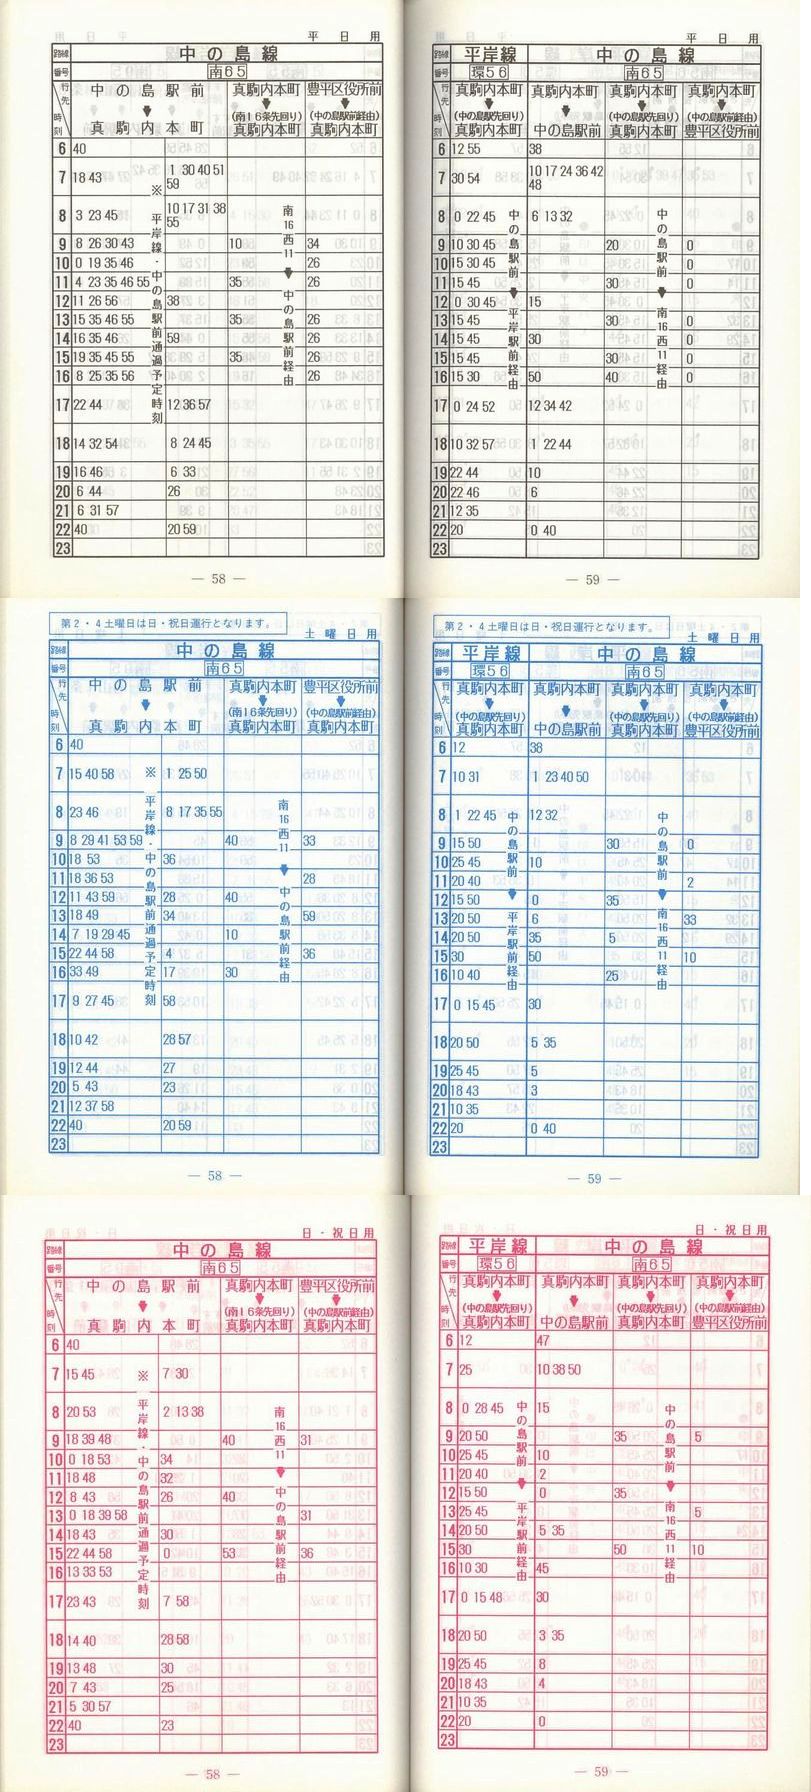 平日用
路線 中の島線
番号 南65
行先 時刻
中の島駅前 真駒内本町
真駒内本町 (南16条先回り) 真駒内本町
豊平区役所前 (中の島駅前経由) 真駒内本町
※平岸線・中の島駅前通過予定時刻
南16西11 中の島駅前経由
6 40
7 18 43 1 30 40 51 59
8 3 23 45 10 17 31 38 55
9 8 26 30 43 10 34
10 0 19 35 46 26
11 4 23 35 46 55 35 26
12 11 26 56 38
13 15 35 46 55 35 26
14 16 35 46 59 26
15 19 35 45 55 35 26
16 8 25 35 56 26
17 22 44 12 36 57
18 14 32 54 8 24 45
19 16 46 6 33
20 6 44 26
21 6 31 57
22 40 20 59
23
— 58 —
平日用
平岸線 中の島線
環56 南65
真駒内本町 (中の島駅先回り) 真駒内本町
真駒内本町 中の島駅前
真駒内本町 (中の島駅先回り) 真駒内本町
真駒内本町 (中の島駅前経由) 豊平区役所前
中の島駅前 平岸駅前経由
中の島駅前 南16西11経由
6 12 55 38
7 30 54 10 17 24 36 42 48
8 0 22 45 6 13 32
9 10 30 45 20 0
10 15 30 45 0
11 15 45 30 0
12 0 30 45 15
13 15 45 30 0
14 15 45 30 0
15 15 45 30 0
16 15 30 50 40 0
17 0 24 52 12 34 42
18 10 32 57 1 22 44
19 22 44 10
20 22 46 6
21 12 35
22 20 0 40
23
— 59 —
第2・4土曜日は日・祝日運行となります。
土曜日用
路線 中の島線
番号 南65
行先 時刻
中の島駅前 真駒内本町
真駒内本町 (南16条先回り) 真駒内本町
豊平区役所前 (中の島駅前経由) 真駒内本町
※平岸線・中の島駅前通過予定時刻
南16西11 中の島駅前経由
6 40
7 15 40 58 1 25 50
8 23 46 8 17 35 55
9 8 29 41 53 59 40 33
10 18 53 36
11 18 36 53 28
12 11 43 59 28 40
13 18 49 34 59
14 7 19 29 45 10
15 22 44 58 4 36
16 33 49 17 30
17 9 27 45 58
18 10 42 28 57
19 12 44 27
20 5 43 23
21 12 37 58
22 40 20 59
23
— 58 —
第2・4土曜日は日・祝日運行となります。
土曜日用
路線 平岸線 中の島線
番号 環56 南65
行先 時刻
真駒内本町 (中の島駅先回り) 真駒内本町
真駒内本町 中の島駅前
真駒内本町 (中の島駅先回り) 真駒内本町
真駒内本町 (中の島駅前経由) 豊平区役所前
中の島駅前 平岸駅前経由
中の島駅前 南16西11経由
6 12 38
7 10 31 1 23 40 50
8 1 22 45 12 32
9 15 50 30 0
10 25 45 10
11 20 40 2
12 15 50 0 35
13 20 50 6 33
14 20 50 35 5
15 30 50 10
16 10 40 25
17 0 15 45 30
18 20 50 5 35
19 25 45 5
20 18 43 3
21 10 35
22 20 0 40
23
— 59 —
日・祝日用
路線 中の島線
番号 南65
行先 時刻
中の島駅前 真駒内本町
真駒内本町 (南16条先回り) 真駒内本町
豊平区役所前 (中の島駅前経由) 真駒内本町
※平岸線・中の島駅前通過予定時刻
南16西11 中の島駅前経由
6 40
7 15 45 7 30
8 20 53 2 13 38
9 18 39 48 40 31
10 0 18 53 34
11 18 48 32
12 8 43 26 40
13 0 18 39 58 31
14 18 43 30
15 22 44 58 0 53 36
16 13 33 53
17 23 43 7 58
18 14 40 28 58
19 13 48 30
20 7 43 25
21 5 30 57
22 40 23
23
— 58 —
日・祝日用
路線 平岸線 中の島線
番号 環56 南65
行先 時刻
真駒内本町 (中の島駅先回り) 真駒内本町
真駒内本町 中の島駅前
真駒内本町 (中の島駅先回り) 真駒内本町
真駒内本町 (中の島駅前経由) 豊平区役所前
中の島駅前 平岸駅前経由
中の島駅前 南16西11経由
6 12 47
7 25 10 38 50
8 0 28 45 15
9 20 50 35 5
10 25 45 10
11 20 40 2
12 15 50 0 35
13 25 45 5
14 20 50 5 35
15 30 50 10
16 10 30 45
17 0 15 48 30
18 20 50 3 35
19 25 45 8
20 18 43 4
21 10 35
22 20 0
23
— 59 —